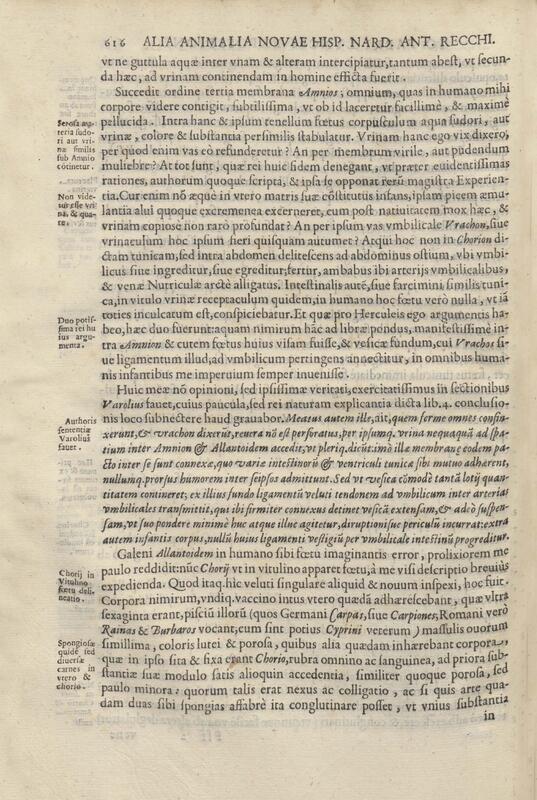 616 ALIA ANIMALIA NOVAE HISP. NARD. ANT. RECCHI.
vt ne guttula aquæ inter vnam & alteram intercipiatur, tantum abest, vt secun-
da hæc, ad vrinam continendam in homine efficta fuerit.
Succedit ordine tertia membrana Amnios; omnium, quas in humano mihi
corpore videre contigit, subtilissima, vt ob id laceretur facillimè, & maximè
pellucida. Intra hanc & ipsum tenellum fœtus corpusculum aqua sudori, aut
vrinæ, colore & substantia persimilis stabulatur. Vrinam hanc ego vix dixero,
per quod enim vas cò refunderetur? An per membrum virile, aut pudendum
muliebre? At tot sunt, quæ rei huic fidem denegant, vt præter euidentissimas
rationes, authorum quoque scripta, & ipsa se opponat rerũ magistra Experien-
tia. Cur enim nõ æquè in vtero matris suæ cõstitutus infans, ipsam picem æmu-
lantia alui quoque excremenea excerneret, cum post natiuitatem mox hæc, &
vrinam copiose non rarò profundat? An per ipsum vas vmbilicale Vrachon, siue
vrinaculum hoc ipsum fieri quisquam autumet? Atqui hoc non in Chorion di-
ctam tunicam, sed intra abdomen delitescens ad abdominus ostium, vbi vmbi-
licus siue ingreditur, siue egreditur, fertur, ambabus ibi arterijs vmbilicalibus,
& venæ Nutriculæ arctè alligatus. Intestinalis autẽ, siue farcimini similis tuni-
ca, in vitulo vrinæ receptaculum quidem, in humano hoc fœtu verò nulla, vt iã
toties inculcatum est, conspiciebatur. Et quæ pro Herculeis ego argumentis ha-
beo, hæc duo fuerunt: aquam nimirum hãc ad libræ pondus, manifestissimè in-
tra Amnion & cutem fœtus huius visam fuisse, & vesicæ fundum, cui Vrachos si-
ue ligamentum illud, ad vmbilicum pertingens annectitur, in omnibus huma-
nis infantibus me imperuium semper inuenisse.
Huic meæ nõ opinioni, sed ipsissimæ veritati, exercitatissimus in sectionibus
Varolius fauet, cuius paucula, sed rei naturam explicantia dicta lib. 4. conclusio-
nis loco subnectere haud grauabor. Meatus autem ille, ait, quem ferme omnes confin-
xerunt, & vrachon dixerũt, reuera nõ est perforatus, per ipsumq. vrina nequaquã ad spa-
tium inter Amnion & Allantoidem accedit, vt pleriq. dicũt: imò illæ membranæ eodem pa-
cto inter se sunt connexæ, quo variæ intestinorũ & ventriculi tunicæ sibi mutuo adhærent,
nullumq. prorsus humorem inter seipsos admittunt. Sed vt vesica cõmodè tantã lotij quan-
titatem contineret; ex illius fundo ligamentũ veluti tendonem ad vmbilicum inter arterias
vmbilicales transmittit, qui ibi firmiter connexus detinet vesicã extensam, & adeò suspen-
sam, vt suo pondere minimè huc atque illuc agitetur, diruptionisue periculũ incurrat: extra
autem infantis corpus, nullũ huius ligamenti vestigiũ per vmbilicale intestinũ progreditur.
Galeni Allantoidem in humano sibi fœtu imaginantis error, prolixiorem me
paulo reddidit: nũc Chorij vt in vitulino apparet fœtu, à me visi descriptio breuius
expedienda. Quod itaq. hic veluti singulare aliquid & nouum inspexi, hoc fuit.
Corpora nimirum, vndiq. vaccino intus vtero quædã adhærescebant, quæ vltra
sexaginta erant, pisciũ illorũ (quos Germani Carpas, siue Carpiones, Romani verò
Rainas & Burbaros vocant, cum sint potius Cyprini veterum) massulis ouorum
simillima, coloris lutei & porosa, quibus alia quædam inhærebant corpora,
quæ in ipso sita & fixa erant Chorio, rubra omnino ac sanguinea, ad priora sub-
stantiæ suæ modulo satis alioquin accedentia, similiter quoque porosa, sed
paulo minora: quorum talis erat nexus ac colligatio, ac si quis arte qua-
dam duas sibi spongias affabrè ita conglutinare posset, vt vnius substantia
in
Serosa ma-
teria sudo-
ri aut vri-
næ similis
sub Amnio
cõtinetur.
Non vide-
tur esse vri
na, & qua-
re.
Duo potis-
sima rei hu
ius argu-
menta.
Authoris
sententiæ
Varolius
fauet.
Chorij in
Vitulino
fœtu deli-
neatio.
Spongiosæ
quidẽ sed
diuersæ
carnes in
vtero &
chorio.